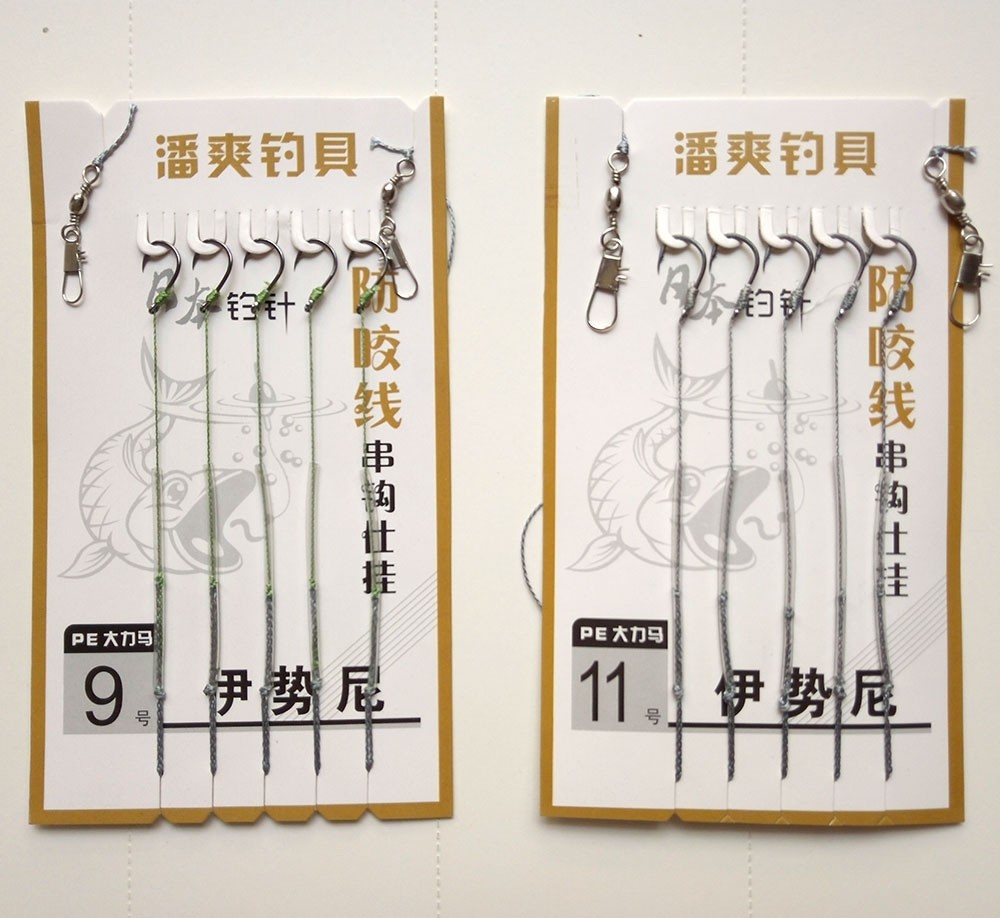 潘爽钓具
日本钓针
防咬线
串钩仕挂
PE大力马
9号
伊势尼
潘爽钓具
日本钓针
防咬线
串钩仕挂
PE大力马
11号
伊势尼